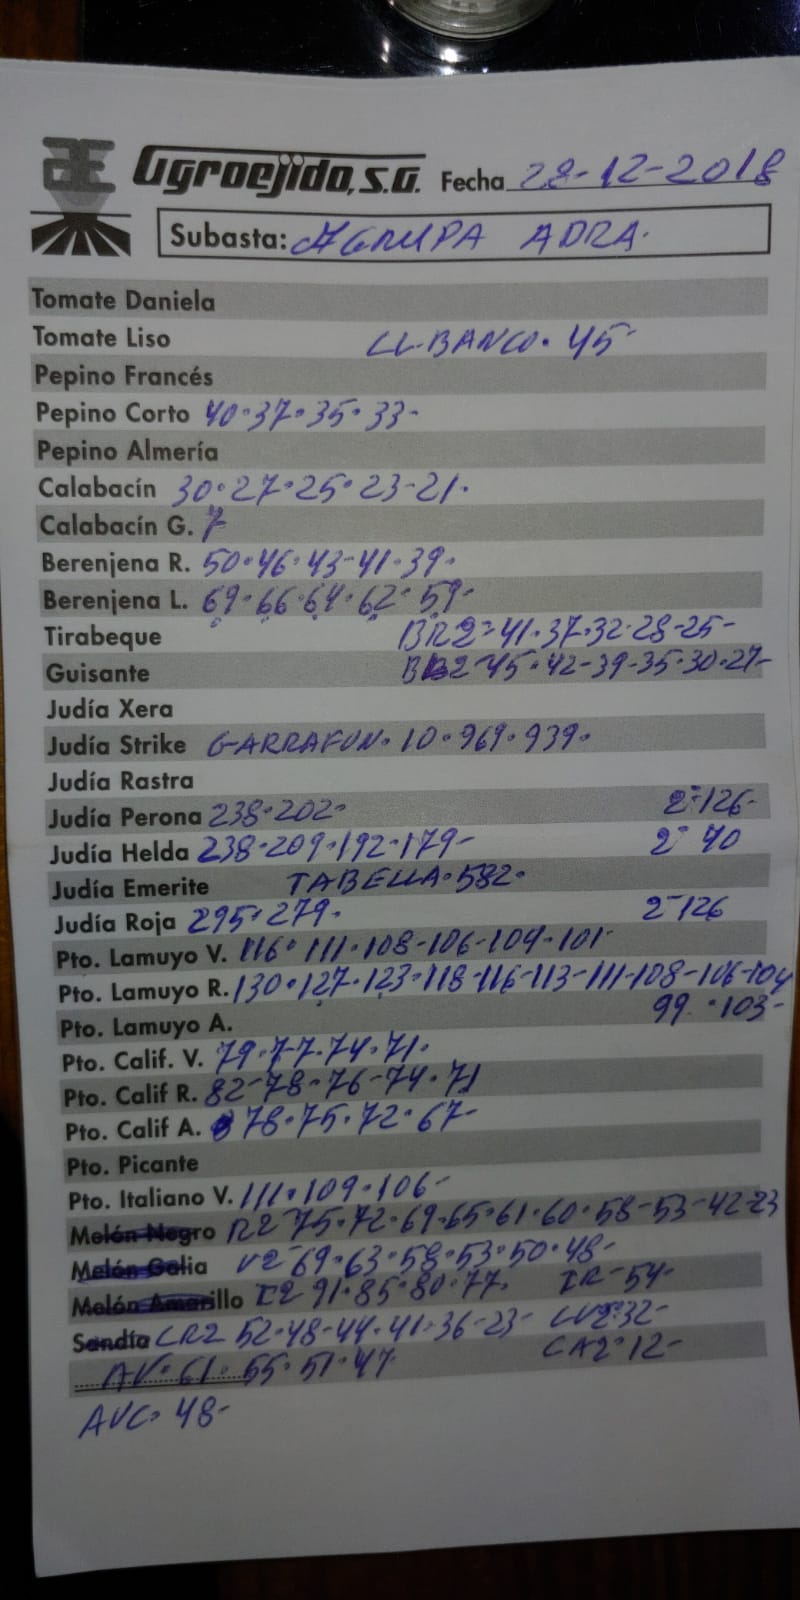 Agroejido, S.A. Fecha 28-12-2018
Subasta: AGRUPA ADRA.
Tomate Daniela
Tomate Liso LL·BANCO· 45-
Pepino Francés
Pepino Corto 40·37·35·33-
Pepino Almería
Calabacín 30·27·25·23-21·
Calabacín G. 7
Berenjena R. 50·46·43-41·39·
Berenjena L. 69·66·64·62·59-
Tirabeque BR2=41·37·32·28-25-
Guisante BB2-45·42-39-35·30·27-
Judía Xera
Judía Strike GARRAFON· 10·969·939·
Judía Rastra
Judía Perona 238·202· 2ª126-
Judía Helda 238·209·192·179- 2ª 70
Judía Emerite TABELLA·582·
Judía Roja 295·279· 2ª126
Pto. Lamuyo V. 116·111·108-106-104-101
Pto. Lamuyo R. 130·127·123·118-116-113-111-108-106-104
Pto. Lamuyo A. 99·103-
Pto. Calif. V. 79·77·74·71·
Pto. Calif R. 82-78·76-74·71
Pto. Calif A. 78·75·72·67-
Pto. Picante
Pto. Italiano V. 111·109·106-
Melón Negro R2 75·72·69·65·61·60·58-53-42-23
Melón Galia V2 69·63·58·53·50·48-
Melón Amarillo I2 91·85·80·77· IR-54-
Sandía CR2 52·48-44·41·36-23- CV2·32-
AV·61·55·51·47 CA2·12-
AVC· 48-